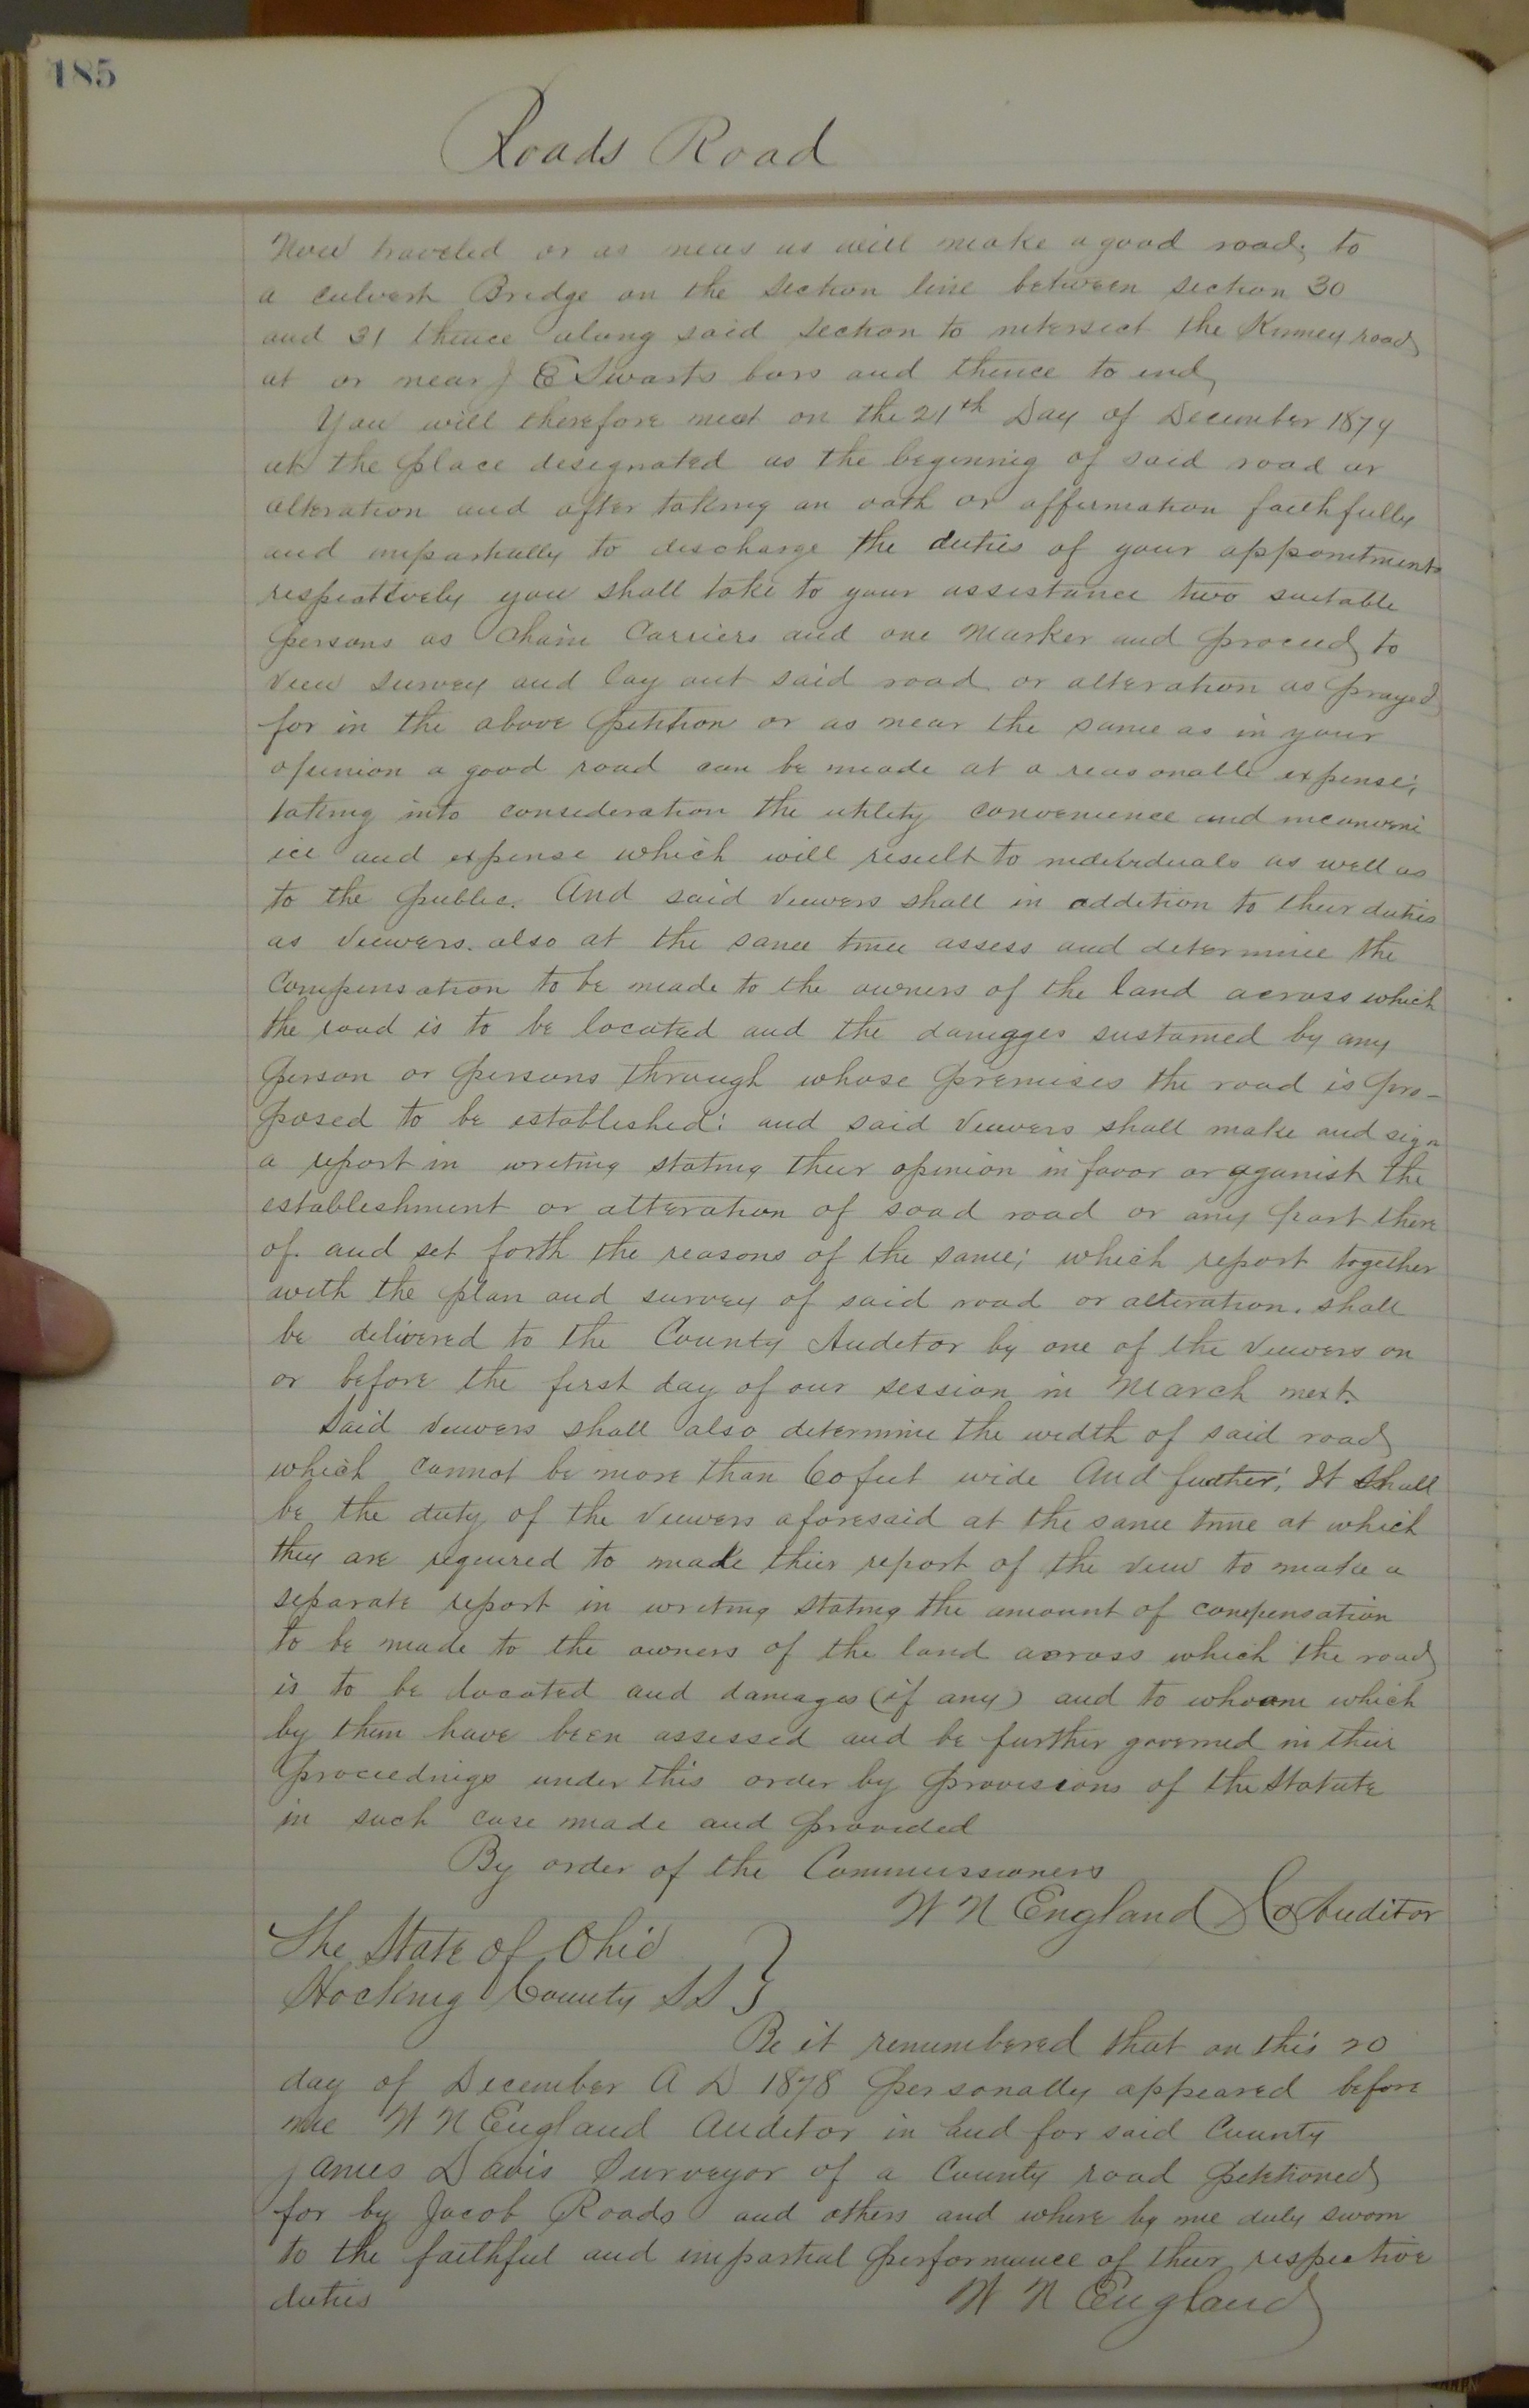 185
Roads Road
Now traveled or as near as will make a good road, to
a culvert Bridge on the Section line between section 30
and 31 thence along said Section to intersect the Kinney road
at or near J E Swarts bars and thence to end,
You will therefore meet on the 21th Day of December 1874
at the place designated as the beginnig of said road or
alteration and after taking an oath or affirmation faithfully
and impartially to discharge the duties of your appointments
respectively you shall take to your assistance two suitable
persons as Chain Carriers and one Marker and proceed to
View Survey and lay out said road or alteration as prayed
for in the above petition or as near the same as in your
opinion a good road can be made at a reasonable expense;
taking into consideration the utility convenience and inconveni
ice and expense which will result to individuals as well as
to the public. And said Viewers shall in addition to their duties
as Viewers. also at the same time assess and determine the
Compensation to be made to the owners of the land across which
the road is to be located and the damages sustained by any
person or persons through whose premises the road is pro-
posed to be established: and said Viewers shall make and sign
a report in writing stating their opinion in favor or against the
establishment or alteration of soad road or any part there
of. and set forth the reasons of the same; which report together
with the plan and survey of said road or alteration. shall
be delivered to the County Auditor by one of the Viewers on
or before the first day of our session in March next.
Said Viewers shall also determine the width of said road
which cannot be more than 60 feet wide And further; It shall
be the duty of the Viewers aforesaid at the same time at which
they are required to make their report of the view to make a
separate report in writing stating the amount of compensation
to be made to the owners of the land across which the road
is to be located and damages (if any) and to whom which
by them have been assessed and be further governed in their
proceedings under this order by provisions of the Statute
in such case made and provided
By order of the Commissioners
W N England Co Auditor
The State of Ohio
Hocking County SS }
Be it remembered that on this 20
day of December A D 1878 personally appeared before
me W N England Auditor in and for said County
James Davis Surveyor of a County road petitioned
for by Jacob Roads and others and where by me duly sworn
to the faithful and impartial performance of their respective
duties W N England